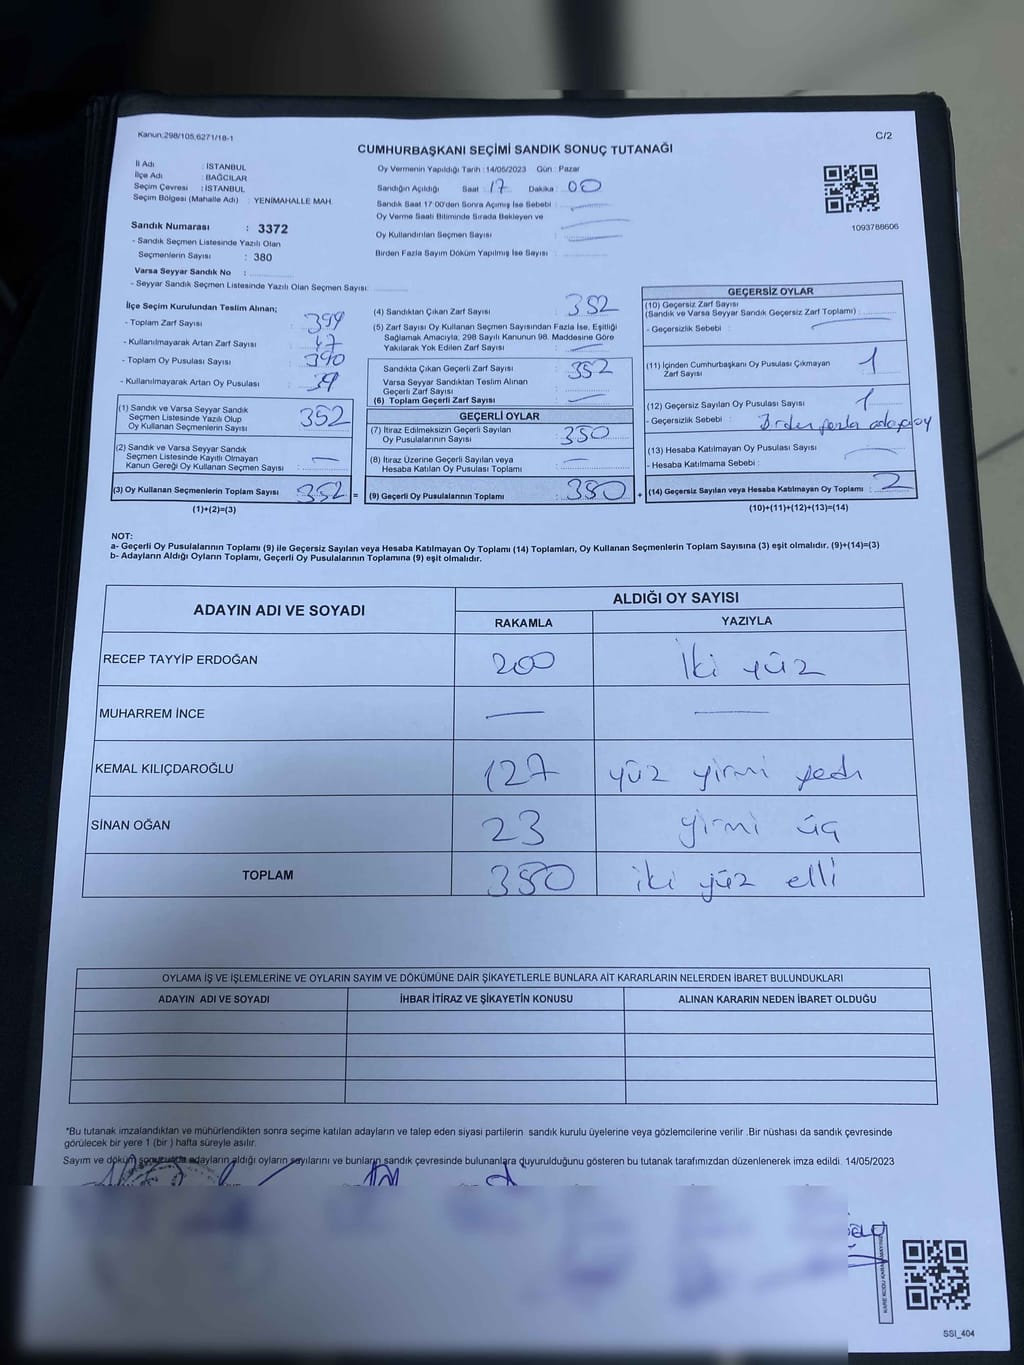 Kanun:298/105,6271/18-1
C/2
CUMHURBAŞKANI SEÇİMİ SANDIK SONUÇ TUTANAĞI
İl Adı : İSTANBUL
İlçe Adı : BAĞCILAR
Seçim Çevresi : İSTANBUL
Seçim Bölgesi (Mahalle Adı) : YENİMAHALLE MAH.
Sandık Numarası : 3372
- Sandık Seçmen Listesinde Yazılı Olan
Seçmenlerin Sayısı : 380
Varsa Seyyar Sandık No :
- Seyyar Sandık Seçmen Listesinde Yazılı Olan Seçmen Sayısı:
Oy Vermenin Yapıldığı Tarih :14/05/2023 Gün : Pazar
Sandığın Açıldığı Saat : 17 Dakika : 00
Sandık Saat 17:00'den Sonra Açılmış İse Sebebi :
Oy Verme Saati Bitiminde Sırada Bekleyen ve
Oy Kullandırılan Seçmen Sayısı :
Birden Fazla Sayım Döküm Yapılmış İse Sayısı :
1093788606
İlçe Seçim Kurulundan Teslim Alınan;
- Toplam Zarf Sayısı : 399
- Kullanılmayarak Artan Zarf Sayısı : 47
- Toplam Oy Pusulası Sayısı : 390
- Kullanılmayarak Artan Oy Pusulası : 39
(1) Sandık ve Varsa Seyyar Sandık
Seçmen Listesinde Yazılı Olup
Oy Kullanan Seçmenlerin Sayısı : 352
(2) Sandık ve Varsa Seyyar Sandık
Seçmen Listesinde Kayıtlı Olmayan
Kanun Gereği Oy Kullanan Seçmen Sayısı : —
(3) Oy Kullanan Seçmenlerin Toplam Sayısı : 352 =
(1)+(2)=(3)
(4) Sandıktan Çıkan Zarf Sayısı : 352
(5) Zarf Sayısı Oy Kullanan Seçmen Sayısından Fazla İse, Eşitliği
Sağlamak Amacıyla, 298 Sayılı Kanunun 98. Maddesine Göre
Yakılarak Yok Edilen Zarf Sayısı : —
Sandıkta Çıkan Geçerli Zarf Sayısı : 352
Varsa Seyyar Sandıktan Teslim Alınan
Geçerli Zarf Sayısı :
(6) Toplam Geçerli Zarf Sayısı : —
GEÇERLİ OYLAR
(7) İtiraz Edilmeksizin Geçerli Sayılan
Oy Pusulalarının Sayısı : 350
(8) İtiraz Üzerine Geçerli Sayılan veya
Hesaba Katılan Oy Pusulası Toplamı : —
(9) Geçerli Oy Pusulalarının Toplamı : 350 +
GEÇERSİZ OYLAR
(10) Geçersiz Zarf Sayısı
(Sandık ve Varsa Seyyar Sandık Geçersiz Zarf Toplamı) :
- Geçersizlik Sebebi : —
(11) İçinden Cumhurbaşkanı Oy Pusulası Çıkmayan
Zarf Sayısı : 1
(12) Geçersiz Sayılan Oy Pusulası Sayısı : 1
- Geçersizlik Sebebi : Birden fazla adaya oy
(13) Hesaba Katılmayan Oy Pusulası Sayısı : —
- Hesaba Katılmama Sebebi :
(14) Geçersiz Sayılan veya Hesaba Katılmayan Oy Toplamı : 2
(10)+(11)+(12)+(13)=(14)
NOT:
a- Geçerli Oy Pusulalarının Toplamı (9) ile Geçersiz Sayılan veya Hesaba Katılmayan Oy Toplamı (14) Toplamları, Oy Kullanan Seçmenlerin Toplam Sayısına (3) eşit olmalıdır. (9)+(14)=(3)
b- Adayların Aldığı Oyların Toplamı, Geçerli Oy Pusulalarının Toplamına (9) eşit olmalıdır.
ADAYIN ADI VE SOYADI
ALDIĞI OY SAYISI
RAKAMLA YAZIYLA
RECEP TAYYİP ERDOĞAN 200 İki yüz
MUHARREM İNCE — —
KEMAL KILIÇDAROĞLU 127 yüz yirmi yedi
SİNAN OĞAN 23 yirmi üç
TOPLAM 350 iki yüz elli
OYLAMA İŞ VE İŞLEMLERİNE VE OYLARIN SAYIM VE DÖKÜMÜNE DAİR ŞİKAYETLERLE BUNLARA AİT KARARLARIN NELERDEN İBARET BULUNDUKLARI
ADAYIN ADI VE SOYADI İHBAR İTİRAZ VE ŞİKAYETİN KONUSU ALINAN KARARIN NEDEN İBARET OLDUĞU
*Bu tutanak imzalandıktan ve mühürlendikten sonra seçime katılan adayların ve talep eden siyasi partilerin sandık kurulu üyelerine veya gözlemcilerine verilir .Bir nüshası da sandık çevresinde
görülecek bir yere 1 (bir ) hafta süreyle asılır.
Sayım ve döküm sonucunda adayların aldığı oyların sayılarını ve bunların sandık çevresinde bulunanlara duyurulduğunu gösteren bu tutanak tarafımızdan düzenlenerek imza edildi. 14/05/2023
SSI_404